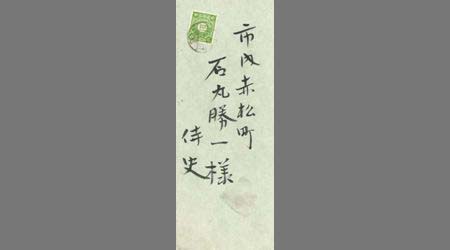 市内赤松町
石丸勝一様
侍史